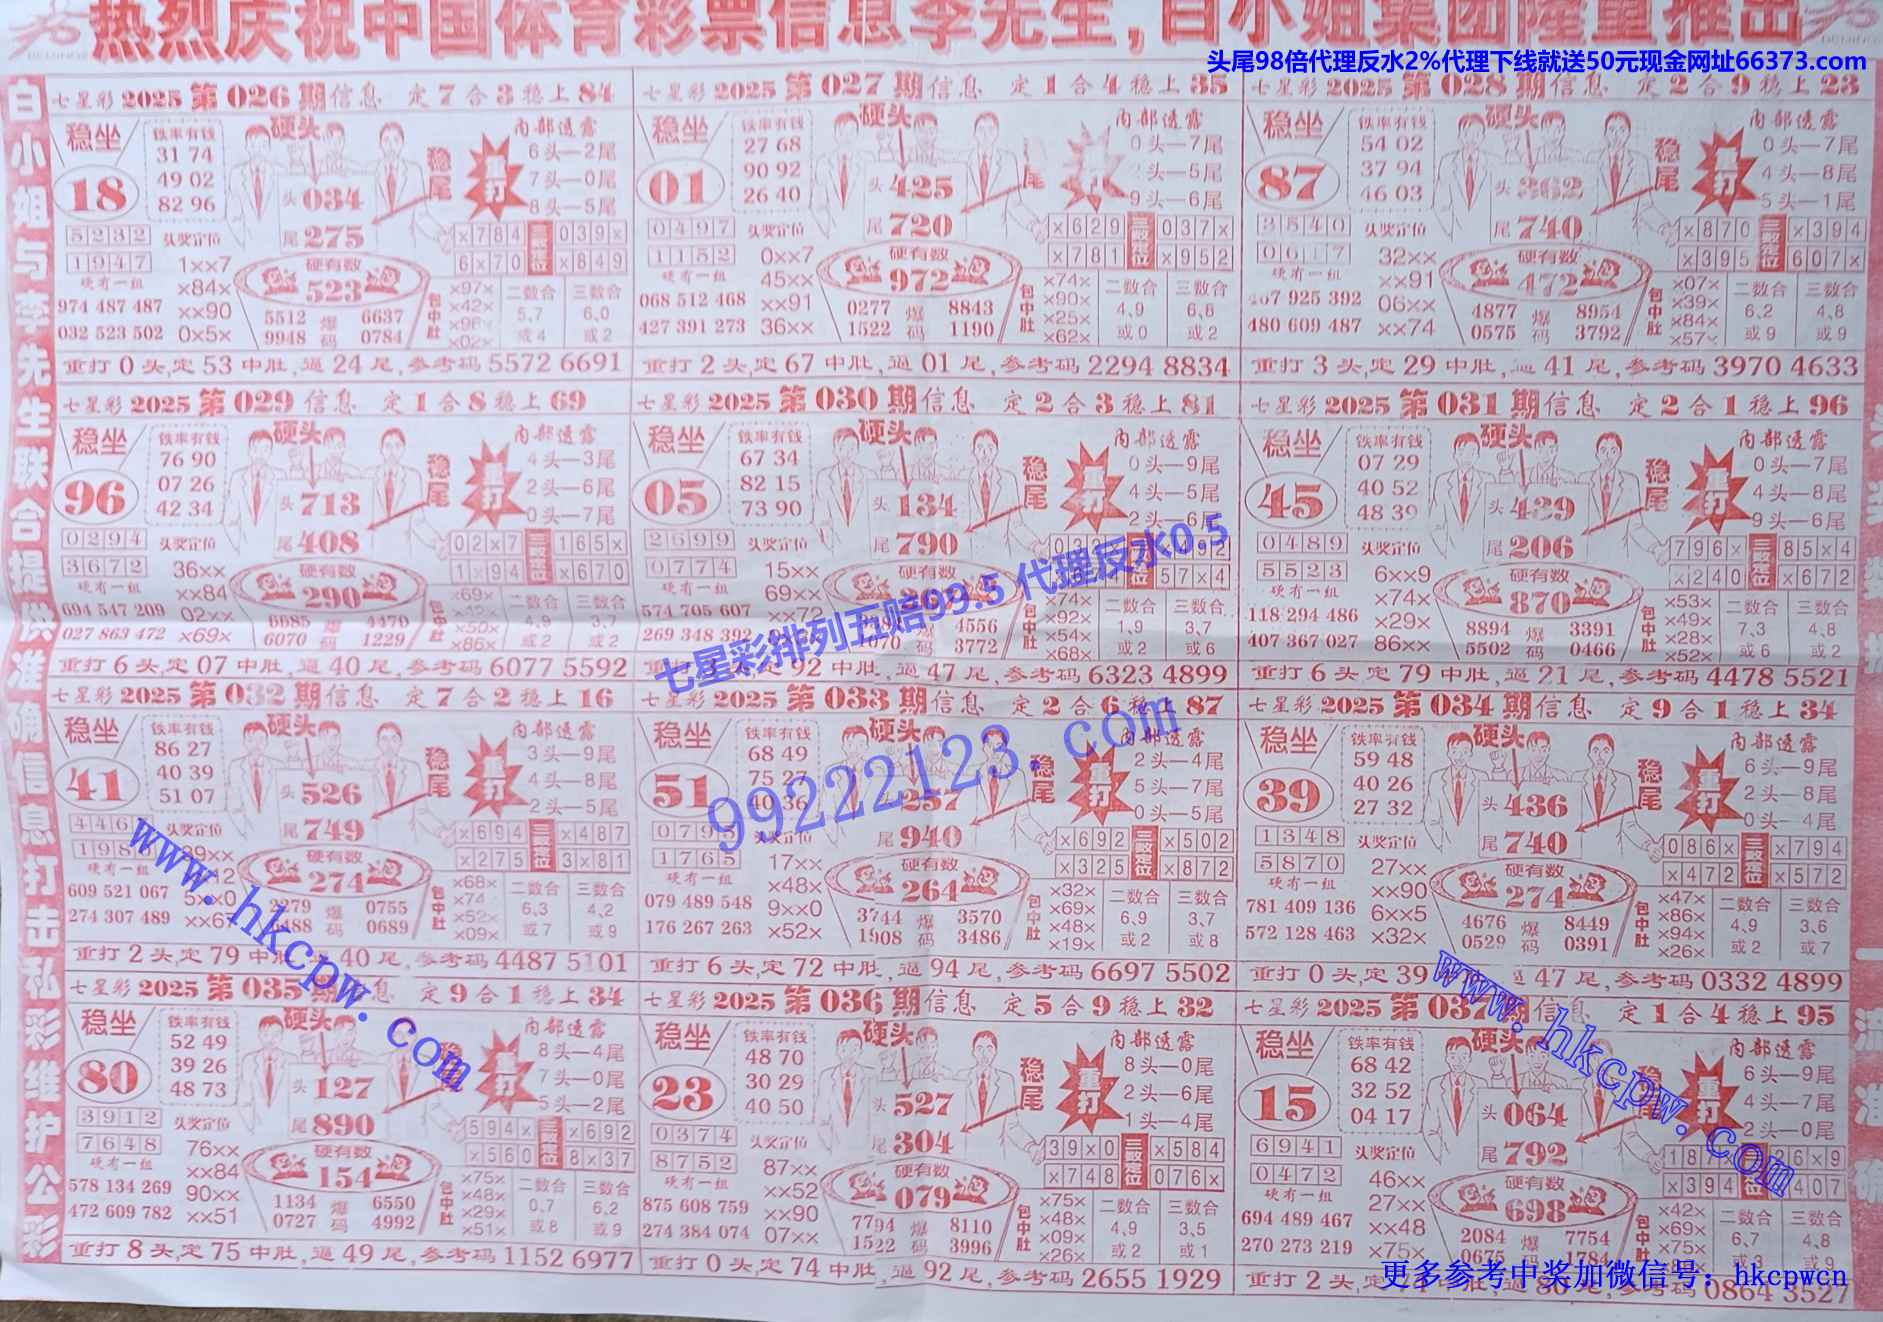 热烈庆祝中国体育彩票信息李先生,白小姐集团隆重推出
头尾98倍代理反水2%代理下线就送50元现金网址66373.com
白小姐与李先生联合提供准确信息打击私彩维护公彩
七星彩 2025 第 026 期信息 定 7 合 3 稳上 84
稳坐 18
铁率有钱
31 74
49 02
82 96
硬头
头 034
尾 275
稳尾
重打
内部透露
6头—2尾
7头—0尾
8头—5尾
5232
1947
头奖定位
1××7
×84×
××90
0×5×
硬有一组
974 487 487
032 523 502
硬有数
523
5512 爆 6637
9948 码 0784
×784 三数定位 039×
6×70 ×849
包中肚
×97×
×42×
×96×
×02×
二数合 三数合
5,7 6,0
或4 或2
重打 0 头,定 53 中肚,逼 24 尾,参考码 5572 6691
七星彩 2025 第 027 期信息 定 1 合 4 稳上 35
稳坐 01
铁率有钱
27 68
90 92
26 40
硬头
头 425
尾 720
尾
0头—7尾
头—5尾
9头—6尾
0497
1152
头奖定位
0××7
45××
××91
36××
硬有一组
068 512 468
427 391 273
硬有数
972
0277 爆 8843
1522 码 1190
×629 三数定位 037×
×781 ×952
包中肚
×74×
×90×
×25×
×62×
二数合 三数合
4,9 6,8
或0 或2
重打 2 头,定 67 中肚,逼 01 尾,参考码 2294 8834
七星彩 2025 第 028 期信息 定 2 合 9 稳上 23
稳坐 87
铁率有钱
54 02
37 94
46 03
硬头
头 362
尾 740
稳尾
重打
内部透露
0头—7尾
4头—8尾
5头—1尾
3540
0617
头奖定位
32××
××91
06××
××74
硬有一组
925 392
480 609 487
硬有数
472
4877 爆 8954
0575 码 3792
×870 三数定位 ×394
×395 607×
包中肚
×07×
×39×
×84×
×57×
二数合 三数合
6,2 4,8
或9 或9
重打 3 头,定 29 中肚, 41 尾,参考码 3970 4633
七星彩 2025 第 029 期信息 定 1 合 8 稳上 69
稳坐 96
铁率有钱
76 90
07 26
42 34
硬头
头 713
尾 408
稳尾
重打
内部透露
4头—3尾
2头—6尾
0头—7尾
0294
3672
头奖定位
36××
××84
02××
×69×
硬有一组
694 547 209
027 863 472
硬有数
290
爆 4470
6070 码 1229
02×7 三数定位 165×
1×94 ×670
包中肚
×69×
×50×
×86×
二数合 三数合
4,9 3,7
或2 或2
重打 6 头,定 07 中肚,逼 40 尾,参考码 6077 5592
七星彩 2025 第 030 期信息 定 2 合 3 稳上 81
稳坐 05
铁率有钱
67 34
82 15
73 90
硬头
头 134
尾 790
稳尾
重打
内部透露
0头—9尾
4头—5尾
2头—6尾
2699
0774
头奖定位
15××
69××
××72
硬有一组
574 705 607
269 348
硬有数
4556
3772
57×4
包中肚
×74×
×92×
×54×
×68×
二数合 三数合
1,9 3,7
或2 或6
92 中肚,逼 47 尾,参考码 6323 4899
七星彩 2025 第 031 期信息 定 2 合 1 稳上 96
稳坐 45
铁率有钱
07 29
40 52
48 39
硬头
头 439
尾 206
稳尾
重打
内部透露
0头—7尾
4头—8尾
9头—6尾
0489
5523
头奖定位
6××9
×74×
×29×
86××
硬有一组
118 294 486
407 367 027
硬有数
870
8894 爆 3391
5502 码 0466
796× 三数定位 85×4
×240 ×672
包中肚
×53×
×49×
×28×
×52×
二数合 三数合
7,3 4,8
或6 或2
重打 6 头,定 79 中肚,逼 21 尾,参考码 4478 5521
七星彩排列五赔99.5 代理反水0.5
99222123.com
七星彩 2025 第 032 期信息 定 7 合 2 稳上 16
稳坐 41
铁率有钱
86 27
40 39
51 07
硬头
头 526
尾 749
稳尾
重打
内部透露
3头—9尾
4头—8尾
2头—5尾
头奖定位
5××0
硬有一组
609 521 067
274 307 489
硬有数
274
2279 爆 0755
码 0689
×694 三数定位 ×487
×275 3×81
包中肚
×68×
×74
×52×
×09×
二数合 三数合
6,3 4,2
或7 或9
重打 2 头,定 79 中肚, 40 尾,参考码 4487 5101
七星彩 2025 第 033 期信息 定 2 合 6 稳上 87
稳坐 51
铁率有钱
68 49
75 27
40 36
硬头
头 257
尾 940
稳尾
重打
内部透露
2头—4尾
5头—7尾
0头—5尾
0795
1765
头奖定位
17××
×48×
9××0
×52×
硬有一组
079 489 548
176 267 263
硬有数
264
3744 爆 3570
1908 码 3486
×692 三数定位 ×502
×325 ×872
包中肚
×32×
×69×
×48×
×19×
二数合 三数合
6,9 3,7
或2 或8
重打 6 头,定 72 中肚,逼 94 尾,参考码 6697 5502
七星彩 2025 第 034 期信息 定 9 合 1 稳上 34
稳坐 39
铁率有钱
59 48
40 26
27 32
硬头
头 436
尾 740
稳尾
重打
内部透露
6头—9尾
2头—8尾
0头—4尾
1348
5870
头奖定位
27××
××90
6××5
×32×
硬有一组
781 409 136
572 128 463
硬有数
274
4676 爆 8449
0529 码 0391
086× 三数定位 ×794
×472 ×572
包中肚
×47×
×86×
×94×
×26×
二数合 三数合
4,9 3,6
或2 或7
重打 0 头,定 39 47 尾,参考码 0332 4899
www.hkcpw.com
www.hkcpw.com
七星彩 2025 第 035 期信息 定 9 合 1 稳上 34
稳坐 80
铁率有钱
52 49
39 26
48 73
硬头
头 127
尾 890
稳尾
重打
内部透露
8头—4尾
7头—0尾
5头—2尾
3912
7648
头奖定位
76××
××84
90××
××51
硬有一组
578 134 269
472 609 782
硬有数
154
1134 爆 6550
0727 码 4992
594× 三数定位 ×692
×560 8×37
包中肚
×75×
×48×
×29×
×51×
二数合 三数合
0,7 6,2
或8 或9
重打 8 头,定 75 中肚,逼 49 尾,参考码 1152 6977
七星彩 2025 第 036 期信息 定 5 合 9 稳上 32
稳坐 23
铁率有钱
48 70
30 29
40 50
硬头
头 527
尾 304
稳尾
重打
内部透露
8头—0尾
2头—6尾
1头—4尾
0374
8752
头奖定位
87××
××52
××90
07××
硬有一组
875 608 759
274 384 074
硬有数
079
7794 爆 8110
1522 码 3996
39×0 三数定位 ×584
×748 076×
包中肚
×75×
×48×
×09×
×26×
二数合 三数合
4,9 3,5
或2 或1
重打 0 头,定 74 中肚,逼 92 尾,参考码 2655 1929
七星彩 2025 第 037 期信息 定 1 合 4 稳上 95
稳坐 15
铁率有钱
68 42
32 52
04 17
硬头
头 064
尾 792
重打
内部透露
6头—9尾
4头—7尾
2头—0尾
6941
0472
头奖定位
46××
27××
××48
×75×
硬有一组
694 489 467
270 273 219
硬有数
698
2084 爆 7754
0675 码 1784
26×9
×394 407
包中肚
×42×
×69×
×75×
二数合 三数合
6,7 4,8
或3 或9
重打 2 头,定 参考码 0864 3527
更多参考中奖加微信号：hkcpwcn